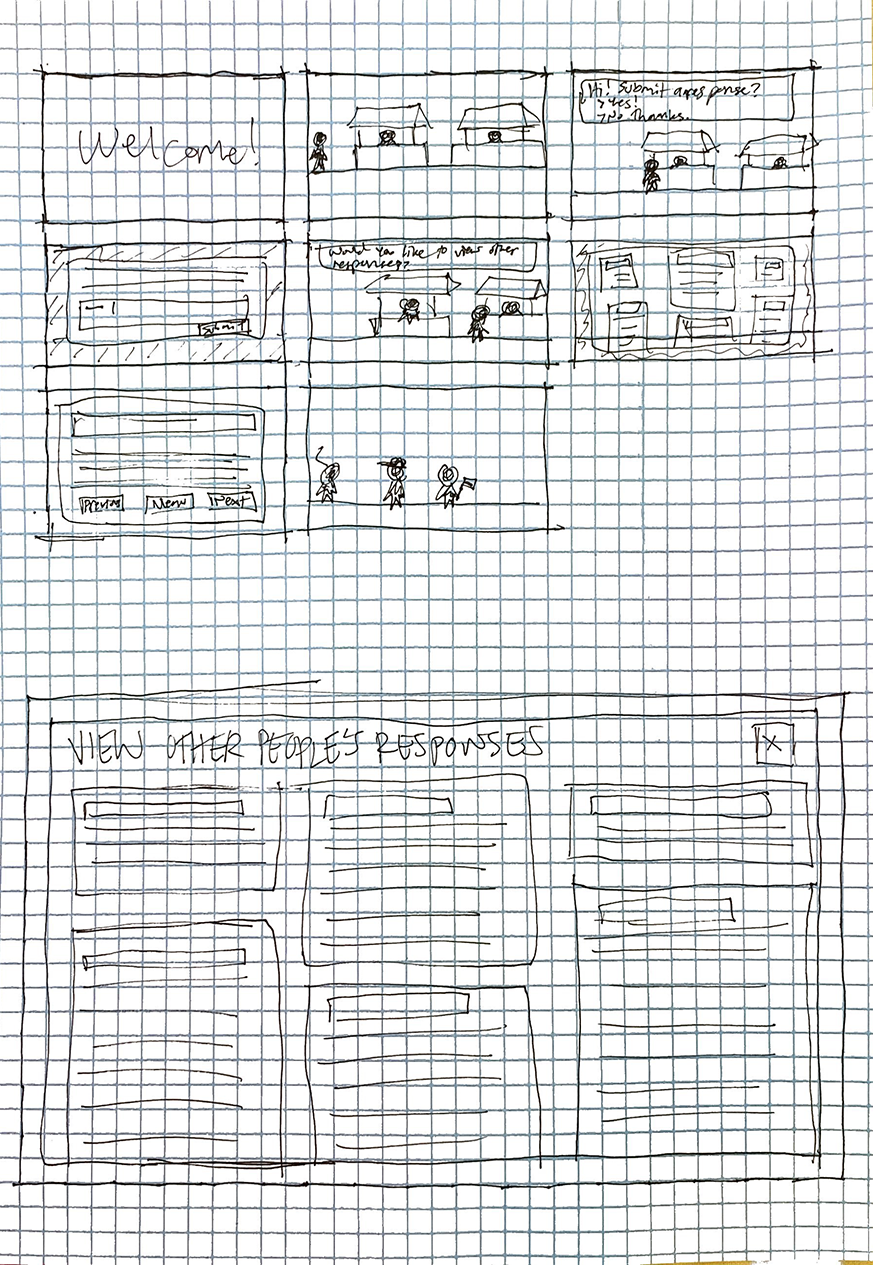 Welcome!
Hi! Submit a response?
> Yes!
> No Thanks.
Submit
Would you like to view other
responses?
Menu
Next
VIEW OTHER PEOPLE'S RESPONSES
X